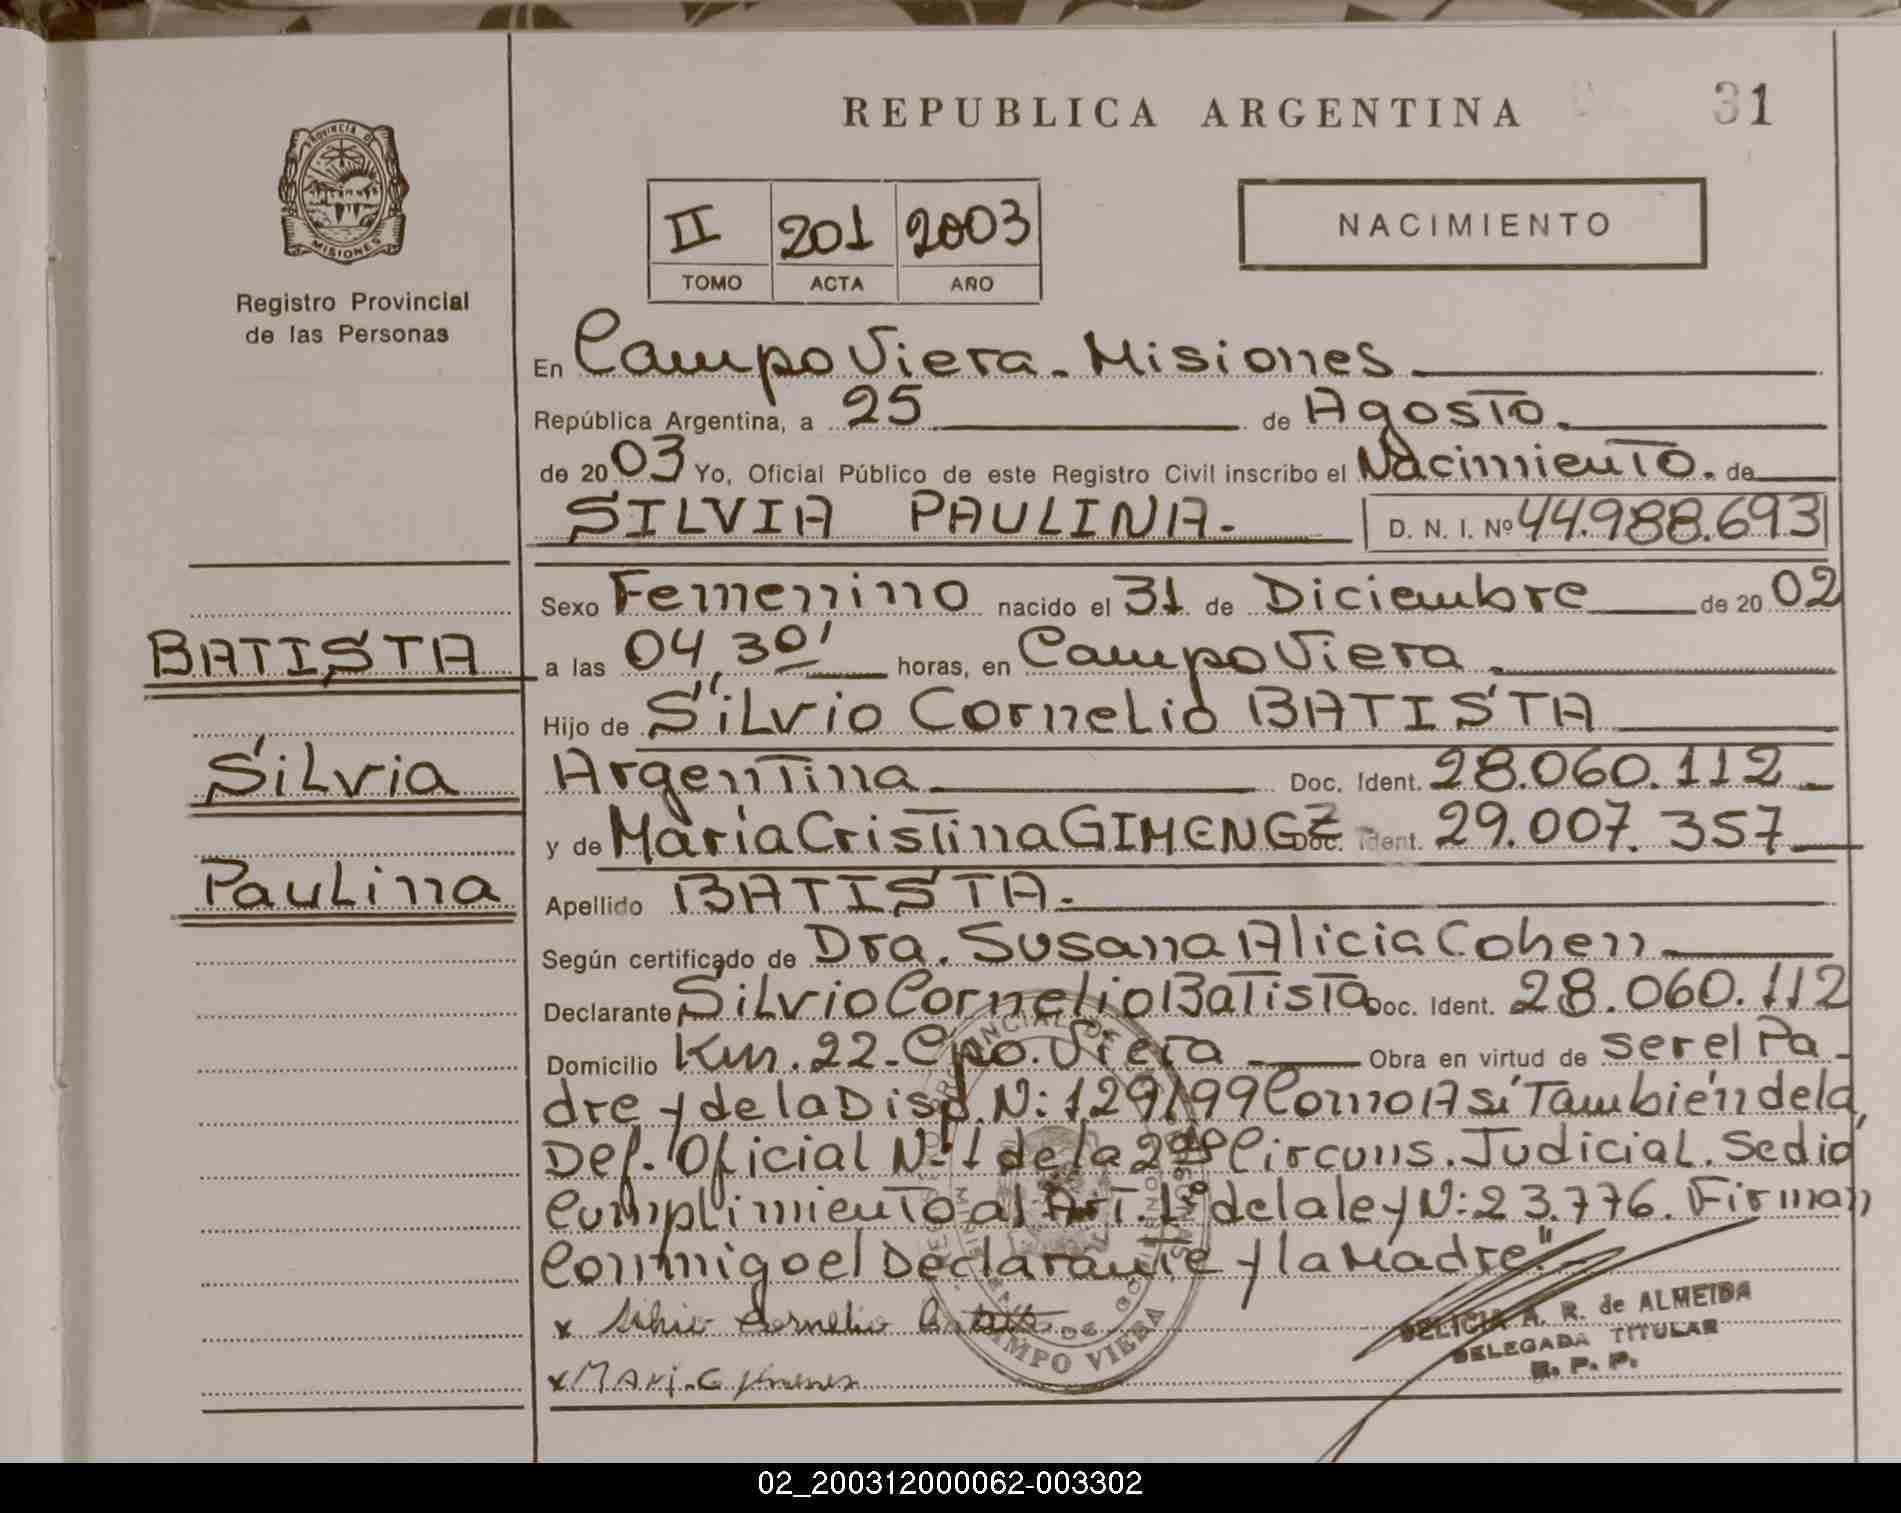 REPUBLICA ARGENTINA
31
PROVINCIA DE
MISIONES
Registro Provincial
de las Personas
II 201 2003
TOMO ACTA AÑO
NACIMIENTO
En Campo Viera - Misiones
República Argentina, a 25 de Agosto.
de 2003 Yo, Oficial Público de este Registro Civil inscribo el Nacimiento. de
SILVIA PAULINA.- D. N. I. Nº 44.988.693
Sexo Femenino nacido el 31 de Diciembre de 2002
BATISTA
a las 04,30' horas, en Campo Viera.
Hijo de Silvio Cornelio BATISTA
Silvia
Argentina Doc. Ident. 28.060.112
y de María Cristina GIMENGZ Doc. Ident. 29.007.357
Paulina
Apellido BATISTA.-
Según certificado de Dra. Susana Alicia Cohen
Declarante Silvio Cornelio Batista Doc. Ident. 28.060.112
Domicilio Km. 22 - Cpo. Viera Obra en virtud de ser el Pa-
dre y de la Disp. N: 129/99 Como Asi También de la
Def. Oficial N-1 de la 2da Circuns. Judicial. Se dió
Cumplimiento al Art. 1º de la ley N: 23.776. Firman
Conmigo el Declarante y la Madre".-
x Silvio Cornelio Batista
x Mari. G Jimenes
CAMPO VIERA
DELICIA A. R. de ALMEIDA
DELEGADA TITULAR
R. P. P.
02_200312000062-003302